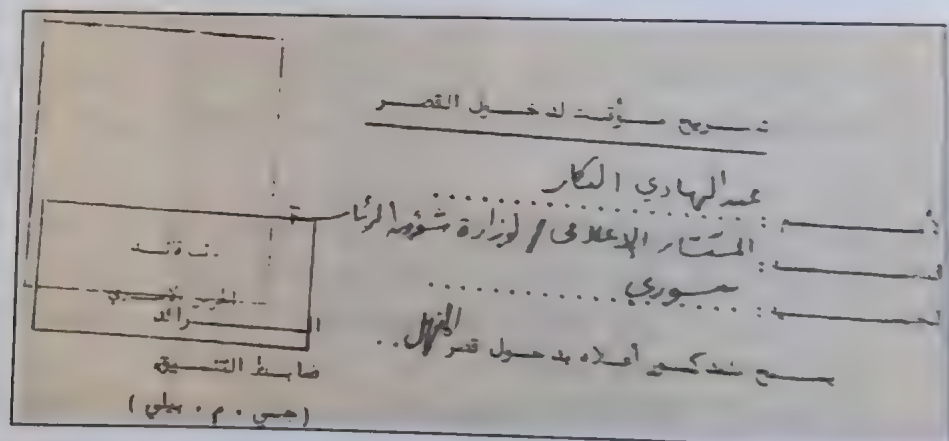 تصريح مؤقت لدخول القصر
الاسم : عبد الهادي البكار
المستشار الإعلامي / لوزارة شؤون الرئاسة
سوري
يسمح للمذكور أعلاه بدخول قصر المنهل ..
قائد
الحرس الأميري
الرائد
ضابط التنسيق
( جي . م . بيلي )